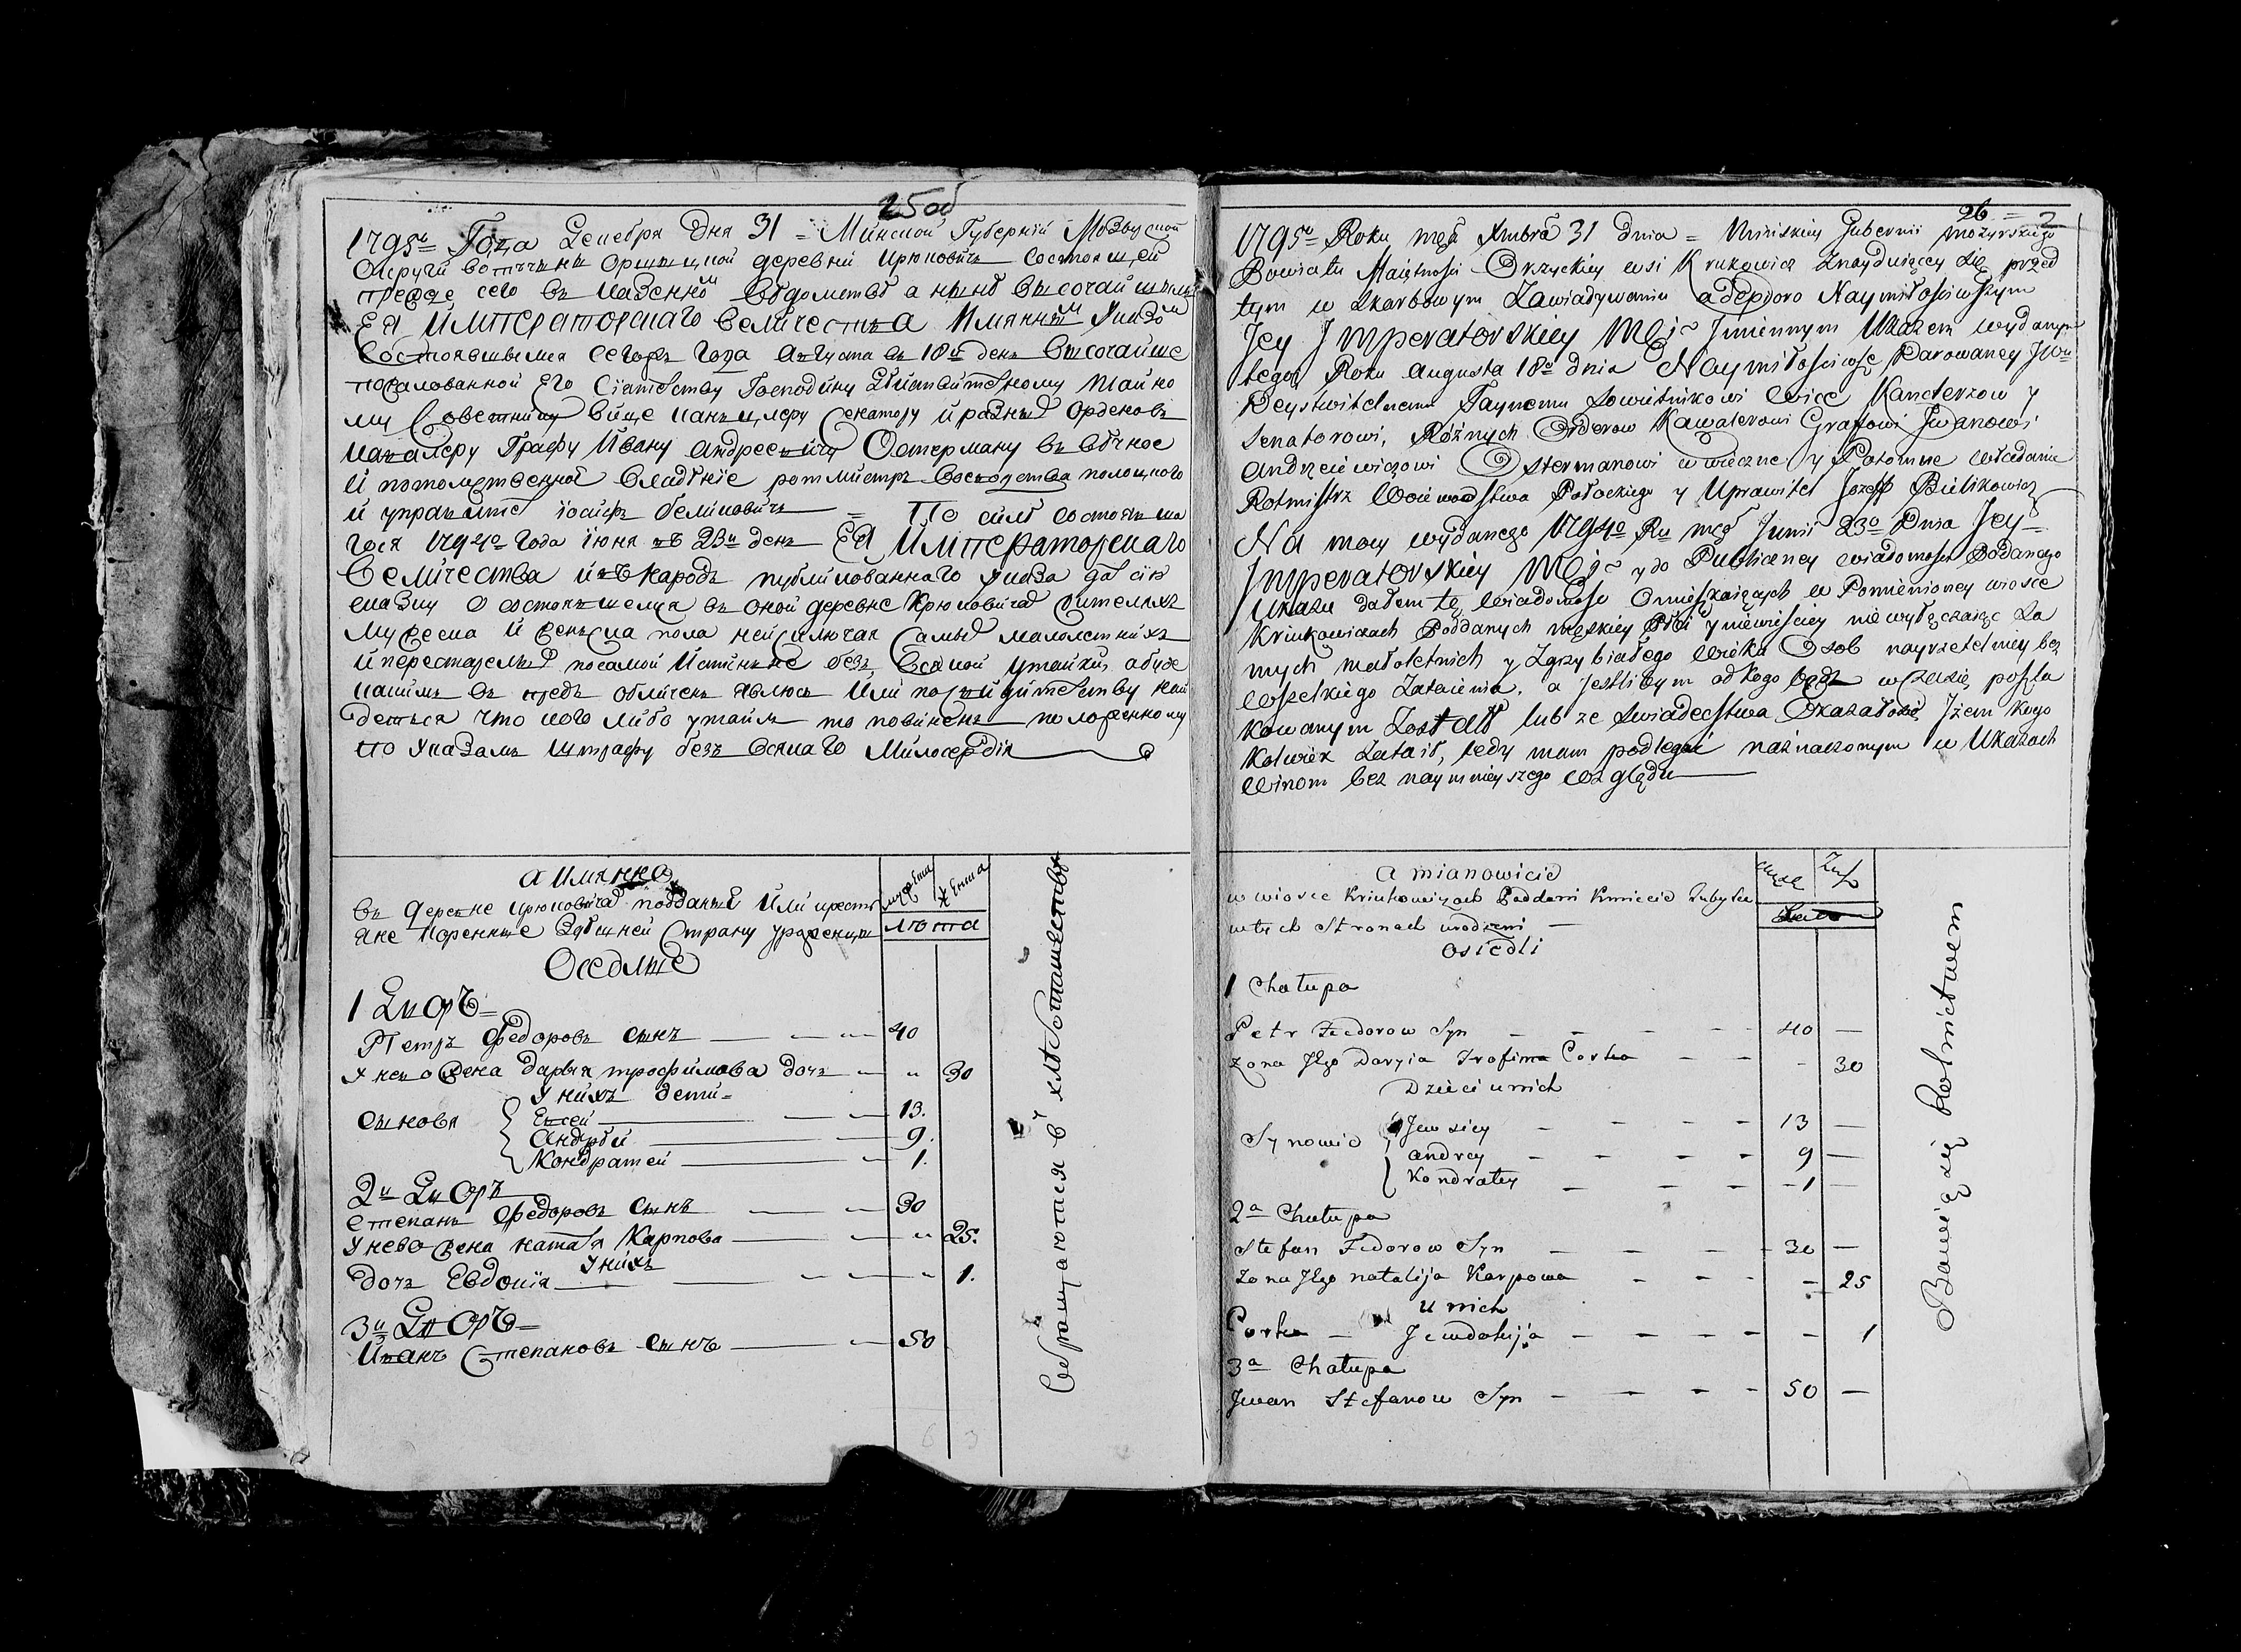 25 об
1795г Года Декебря Дня 31 = Минской Губернїи Мозырской
Округи вотчины оршицкой деревни Крюковичъ состоящей
прежде сего въ казенномъ ведометвѣ а нынѣ высочайшимъ
ЕЯ ИМПЕРАТОРСКАГО Величества Имяннымъ Указомъ
состоявшымся сегожъ года августа въ 18й день высочайше
пожалованной Его Сіятельству Господину Дѣйствительному тайно
му Советнику вице канцлеру Сенатору и разныхъ орденовъ
кавалеру Графу Ивану андреевичу Остерману въ вѣчное
и потомственное владѣніе ротмистръ воеводства полоцкого
и управитель іосифъ беликовичъ = По силѣ состоявша
гося 1794го года іюня въ 23й день ЕЯ ИМПЕРАТОРСКАГО
Величества и въ народъ публикованнаго указа далъ сію
сказку о состоящихъ въ оной деревне Крюковичахъ жителяхъ
мужеска и женска пола не исключая самыхъ малолетнихъ
и престарелыхъ по самой Истинне безъ всякой утайки, а буде
какимъ въ предь обличенъ явлюсь или по свидѣтельству най
деться что кого либо утаилъ то повиненъ положенному
по указамъ штрафу безъ всякаго милосердія
а имянно
мужеска
женска
лѣта
въ деревне крюковичахъ подданые или крестья
яне коренные здѣшней страны уроженцы
Оседлые
1 Дворъ =
Петръ Федоровъ сынъ 40
у него жена дарья трофимова дочь " 30
у нихъ дети =
сыновя { Евсей 13.
Андрѣй 9.
Кондратей 1.
2й Дворъ
степанъ Федоровъ сынъ 30
у нево жена наталя Карпова " 25.
у нихъ
дочь Евдокія " 1.
3й Дворъ =
Иванъ Степановъ сынъ 50
Обращаются в хлѣбопашествѣ
26 = 2
1795o Roku mca Xmbra 31 dnia = Minskiey Gubernii mozyrskiego
Powiatu Maiętnosci Orzyckiey wsi Krukowicz znayduiącey się przed
tym w Skarbowym Zawiadywaniu a teporo Naymiłosciwszym
Jey IMPERATORSKIEY Mci Jmiennym Ukazem wydanym
tegoż Roku Augusta 18o dnia Naymiłosciwie Darowaney JWu
Deystwitelnemu Taynemu Sowietnikowi Wice Kanclerzow y
Senatorowi, Róźnych Orderow Kawalerowi Grafowi Jwanowi
Andrzeiewiczowi Ostermanowi w wieczne y Potomne Władanie
Rotmistrz Woiewodstwa Połockiego y Uprawitel Jozeff Bielikowicz
Na mocy wydanego 1794o Ru mca Junii 23o Dnia Jey
IMPERATORSKIEY Mci y do Publiczney wiadomosci Poddanego
Ukazu dałem tę Wiadomosc Omieszkaiących w Pomienioney wiosce
Kriukowiczach Poddanych męskiey Płci y niewiesciey nie wyłączaiąc Sa
mych małoletnich y Zgrzybiałego wieku Osob nayrzetelniey bez
wszelkiego Zataienia. a jesliby m od kogo bądz w czasie poszla
kowanym Został lub ze Swiadectwa Okazałosie Jżem kogo
kolwiek Zataił, tedy mam podlegać naznaczonym w Ukazach
Winom bez naymnieyszego względu
a mianowicie
męsz
w wiosce Kriukowiczach Poddani Kmiecie Tubylcy
w tych Stronach urodzeni
osiedli
1 Chałupa
Petr Fiedorow Syn 40 —
Zona Jego Daryia Trofima Corka - 30
Dzieci u nich
Synowie { Jewsiey 13 —
Andrey 9 —
Kondratey 1 —
2a Chałupa
Stefan Fiedorow Syn 30 —
Zona Jego natalija Karpowa - 25
u nich
Corka — Jewdokija - 1
3a Chałupa
Jwan Stefanow Syn 50 —
Bawią się Rolnictwem